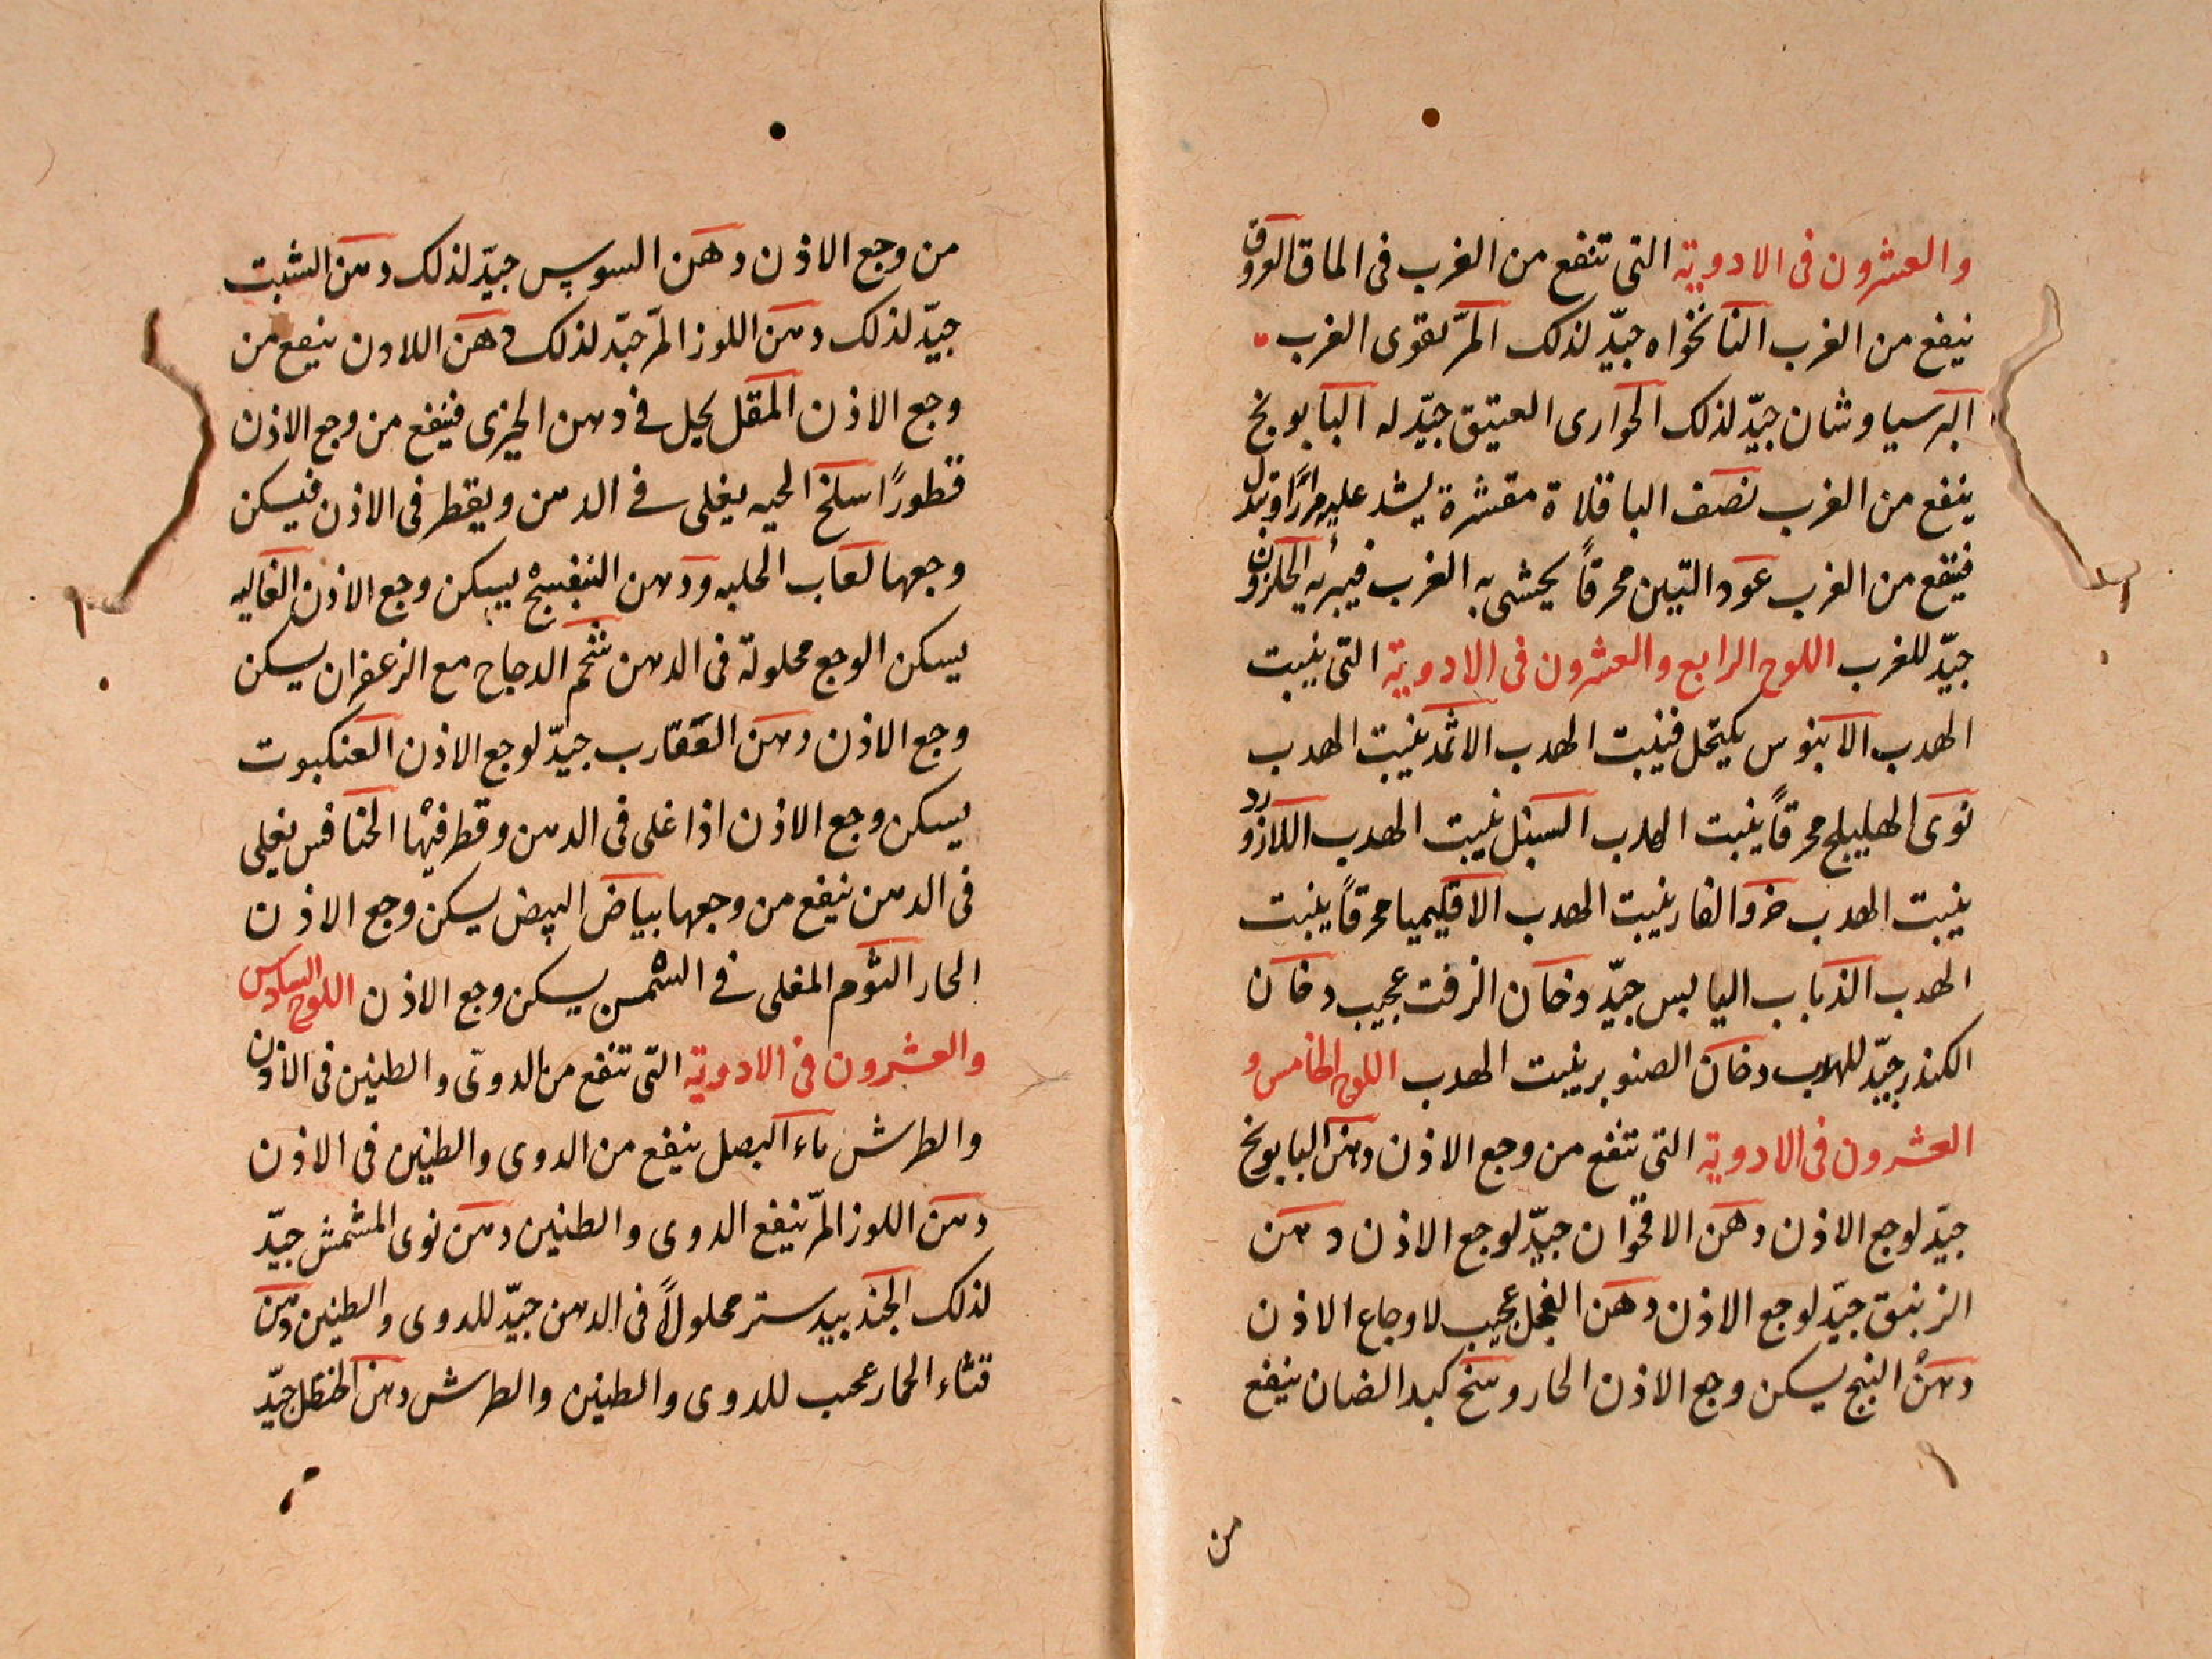 والعشرون فى الادوية التى تنفع من الغرب فى الماق العروق
ينفع من الغرب النانخواه جيّد لذلك المرّ يقوى الغرب
البرسياوشان جيّد لذلك الحوارى العتيق جيّد له البابونج
ينفع من الغرب نصف الباقلاة مقشرة يشد عليه مرارًا وتبدل
فينفع من الغرب عود التين محرقاً يحشى به الغرب فيبرئه الحلزون
جيّد للغرب اللوح الرابع والعشرون فى الادوية التى ينبت
الهدب الابنوس يكتحل فينبت الهدب الاثمد ينبت الهدب
نوى الهليلج محرقاً ينبت الهدب السنبل ينبت الهدب اللازورد
ينبت الهدب خرو الفار ينبت الهدب الاقليميا محرقاً ينبت
الهدب الذباب اليابس جيّد دخان الزفت عجيب دخان
الكندر جيّد للهدب دخان الصنوبر ينبت الهدب اللوح الخامس و
العشرون فى الادوية التى تنفع من وجع الاذن دهن البابونج
جيّد لوجع الاذن دهن الاقحوان جيّد لوجع الاذن دهن
الزنبق جيّد لوجع الاذن دهن الفجل عجيب لاوجاع الاذن
دهن البنج يسكن وجع الاذن الحار وسخ كبد الضان ينفع
من
من وجع الاذن دهن السوس جيّد لذلك دهن الشبت
جيّد لذلك دهن اللوز المرّ جيّد لذلك دهن اللادن ينفع من
وجع الاذن المقل يحل فى دهن الخيرى فينفع من وجع الاذن
قطورًا سلخ الحيه يغلى فى الدهن ويقطر فى الاذن فيسكن
وجعها لعاب الحلبه ودهن البنفسج يسكن وجع الاذن الغاليه
يسكن الوجع محلولة فى الدهن شحم الدجاج مع الزعفران يسكن
وجع الاذن دهن العقارب جيّد لوجع الاذن العنكبوت
يسكن وجع الاذن اذا غلى فى الدهن وقطر فيها الخنافس يغلى
فى الدهن ينفع من وجعها بياض البيض يسكن وجع الاذن
الحار الثوم المغلى فى الشمس يسكن وجع الاذن اللوح السادس
والعشرون فى الادوية التى تنفع من الدوى والطنين فى الاذن
والطرش ماء البصل ينفع من الدوى والطنين فى الاذن
دهن اللوز المرّ ينفع الدوى والطنين دهن نوى المشمش جيّد
لذلك الجندبيدستر محلولاً فى الدهن جيّد للدوى والطنين دهن
قثاء الحمار عجيب للدوى والطنين والطرش دهن الحنظل جيّد